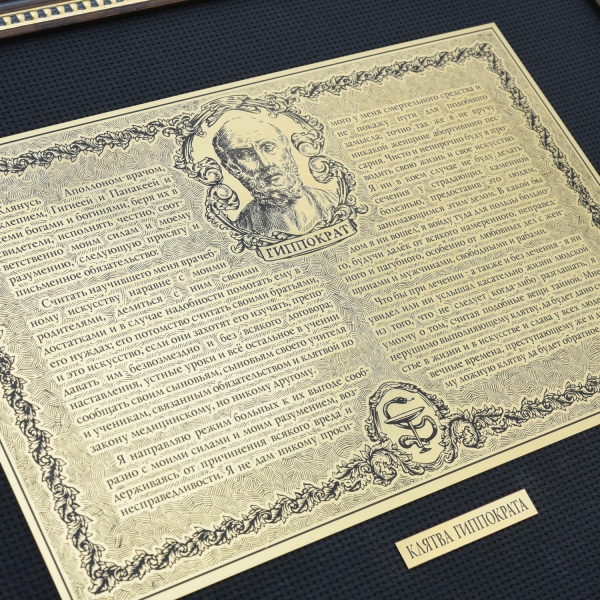 Клянусь Аполлоном-врачом,
Асклепием, Гигиеей и Панакеей и
всеми богами и богинями, беря их в
свидетели, исполнять честно, соот-
ветственно моим силам и моему
разумению, следующую присягу и
письменное обязательство:
Считать научившего меня врачеб-
ному искусству наравне с моими
родителями, делиться с ним своими
достатками и в случае надобности помогать ему в
его нуждах; его потомство считать своими братьями,
и это искусство, если они захотят его изучать, препо-
давать им безвозмездно и без всякого договора;
наставления, устные уроки и всё остальное в учении
сообщать своим сыновьям, сыновьям своего учителя
и ученикам, связанным обязательством и клятвой по
закону медицинскому, но никому другому.
Я направляю режим больных к их выгоде сооб-
разно с моими силами и моим разумением, воз-
держиваясь от причинения всякого вреда и
несправедливости. Я не дам никому проси-
ГИППОКРАТ
мого у меня смертельного средства и
не покажу пути для подобного
замысла; точно так же я не вручу
никакой женщине абортивного пес-
сария. Чисто и непорочно буду я про-
водить свою жизнь и свое искусство.
Я ни в коем случае не буду делать
сечения у страдающих каменной
болезнью, предоставив это людям,
занимающимся этим делом. В какой бы
дом я ни вошел, я войду туда для пользы больно-
го, будучи далёк от всякого намеренного, неправед-
ного и пагубного, особенно от любовных дел с жен-
щинами и мужчинами, свободными и рабами.
Что бы при лечении - а также и без лечения - я ни
увидел или ни услышал касательно жизни людской
из того, что не следует когда-либо разглашать, я
умолчу о том, считая подобные вещи тайной. Мне,
нерушимо выполняющему клятву, да будет дано сча-
стье в жизни и в искусстве и слава у всех людей на
вечные времена, преступающему же и дающе-
му ложную клятву да будет обратное
КЛЯТВА ГИППОКРАТА